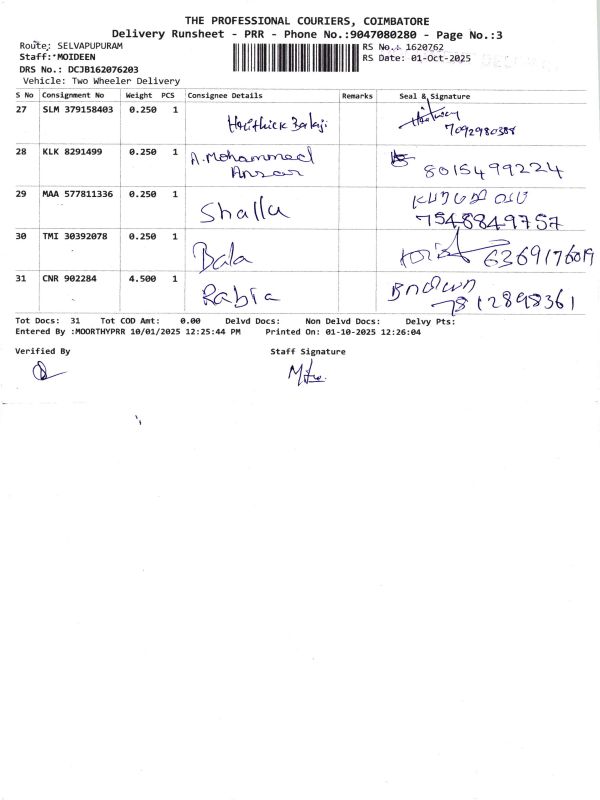 THE PROFESSIONAL COURIERS, COIMBATORE
Delivery Runsheet - PRR - Phone No.:9047080280 - Page No.:3
Route: SELVAPUPURAM
RS No.: 1620762
Staff: MOIDEEN
RS Date: 01-Oct-2025
DRS No.: DCJB162076203
Vehicle: Two Wheeler Delivery
S No Consignment No Weight PCS Consignee Details Remarks Seal & Signature
27 SLM 379158403 0.250 1 Harithick Balaji
7092980388
28 KLK 8291499 0.250 1 A.Mohammed Ansar 8015499224
29 MAA 577811336 0.250 1 Shallu
7548849757
30 TMI 30392078 0.250 1 Bala 6369176019
31 CNR 902284 4.500 1 Rabia
7812898361
Tot Docs: 31 Tot COD Amt: 0.00 Delvd Docs: Non Delvd Docs: Delvy Pts:
Entered By :MOORTHYPRR 10/01/2025 12:25:44 PM Printed On: 01-10-2025 12:26:04
Verified By Staff Signature